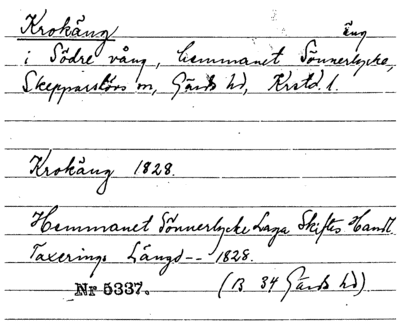 Krokäng äng
i Södre vång, hemmanet Sönnerlycke,
Skepparslövs sn, Gärds hd, Krstd. l.
Krokäng 1828.
Hemmanet Sönnerlycke Laga Skiftes Handl.
Taxerings Längd -- 1828.
Nr 5337. (B 34 Gärds hd)